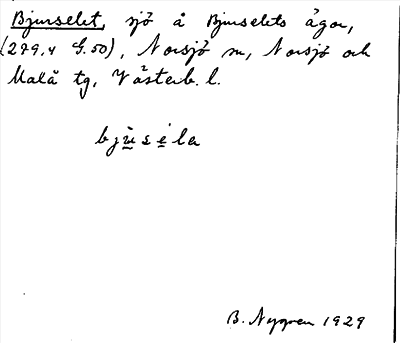 Bjurselet, sjö å Bjurselets ägor,
(279,4 G.50), Norsjö sn, Norsjö och
Malå tg, Västerb. l.
bju̱se̱la
B. Nygren 1929